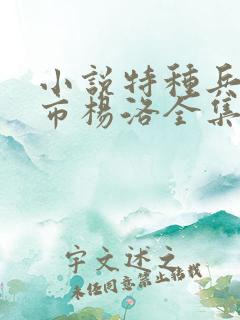 小說特種兵
市楊洛全集
宇文述之
未经同意禁止转载